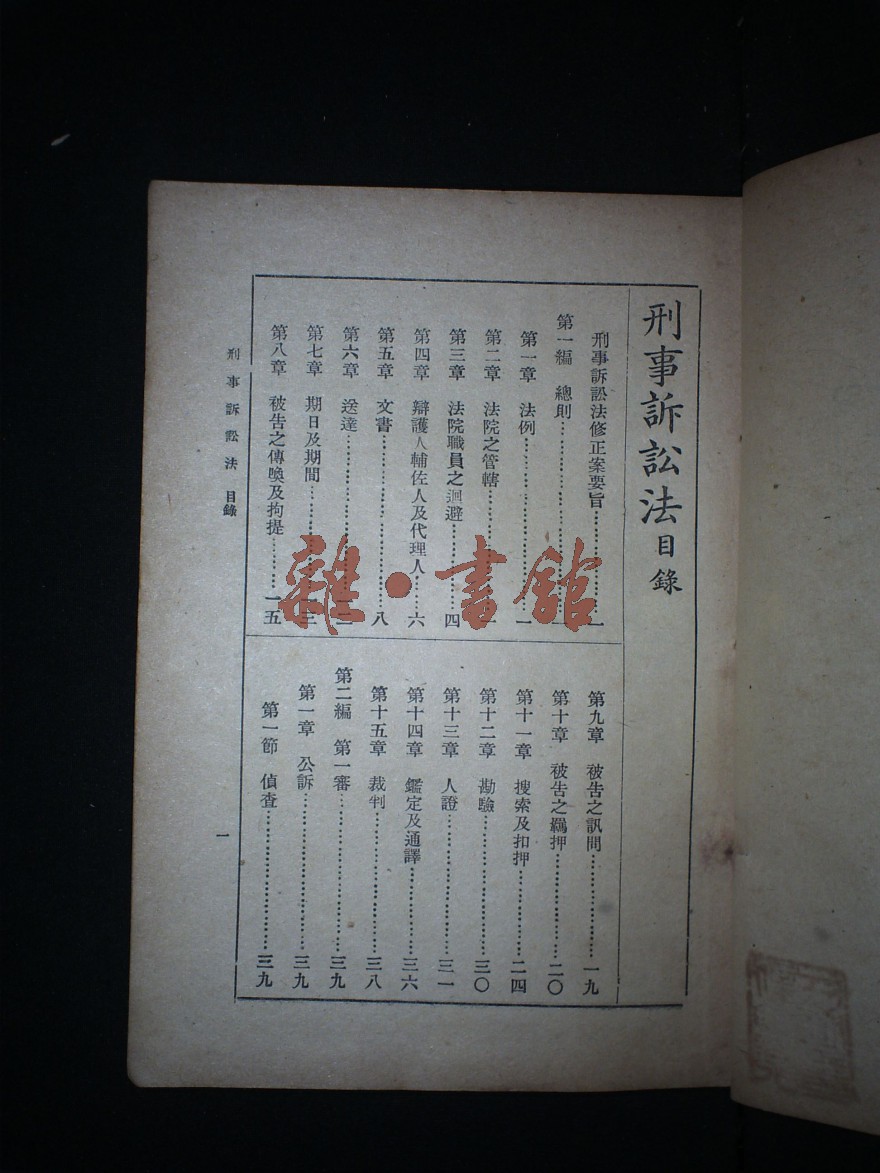 刑事訴訟法目錄
刑事訴訟法修正案要旨……一
第一編 總則……
第一章 法例……一
第二章 法院之管轄……
第三章 法院職員之迴避……四
第四章 辯護人輔佐人及代理人……六
第五章 文書……八
第六章 送達……
第七章 期日及期間……
第八章 被告之傳喚及拘提……一五
第九章 被告之訊問……一九
第十章 被告之羈押……二〇
第十一章 搜索及扣押……二四
第十二章 勘驗……三〇
第十三章 人證……三一
第十四章 鑑定及通譯……三六
第十五章 裁判……三八
第二編 第一審……三九
第一章 公訴……三九
第一節 偵查……三九
刑事訴訟法 目錄
一
雜·書館